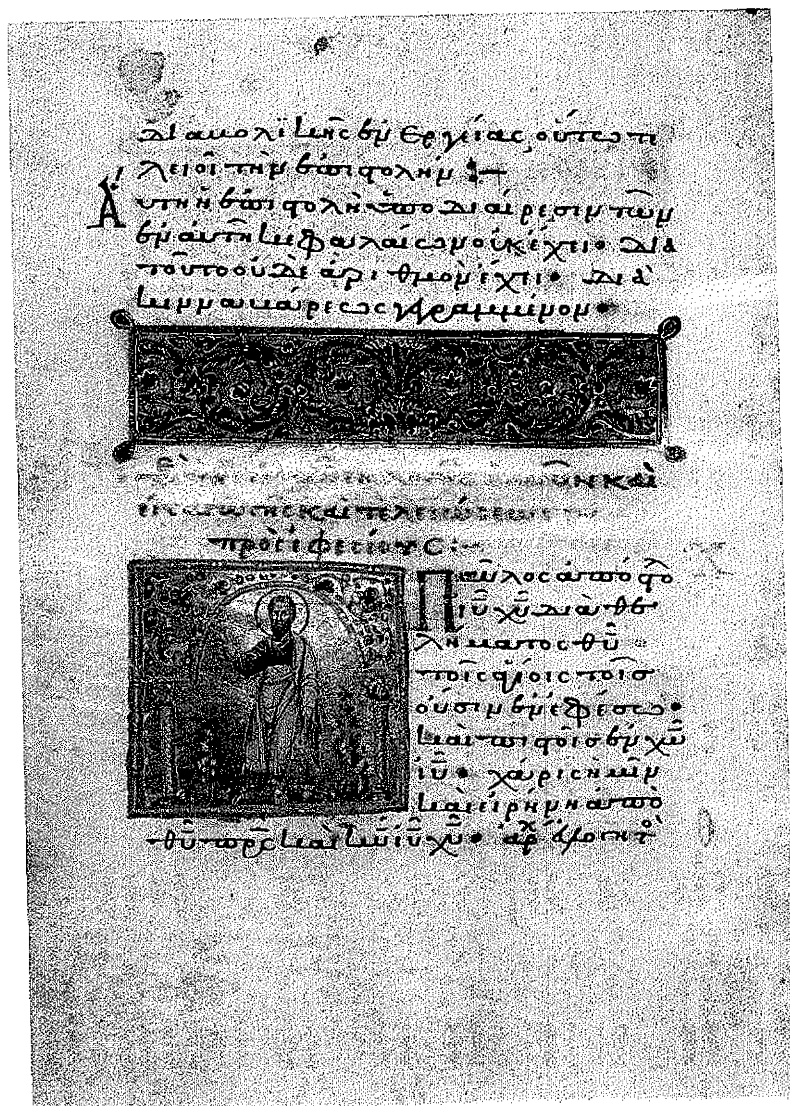 διαβολικῆς ἐνεργείας, οὕτω τε
λειοῖ τὴν ἐπιστολήν :—
Αὕτη ἡ ἐπιστολὴ ὑποδιαίρεσιν τῶν
ἐν αὐτῆ κεφαλαίων οὐκ ἔχει· διὰ
τοῦτο οὐδὲ ἀριθμὸν ἔχει· διὰ
γραμμένον·
καὶ
καὶ τελειώσεως
πρὸς ἐφεσίους :~
Παῦλος ἀπόστο
ιῦ χῦ διὰ θε
λήματος θῦ
τοῖς ἁγίοις τοῖσ
οὖσιν ἐν ἐφέσω·
καὶ πιστοῖσ ἐν χῶ
ιῦ· χάρις ἡμῖν
καὶ εἰρήνη ἀπὸ
θῦ πρς καὶ κῦ ιῦ χῦ·